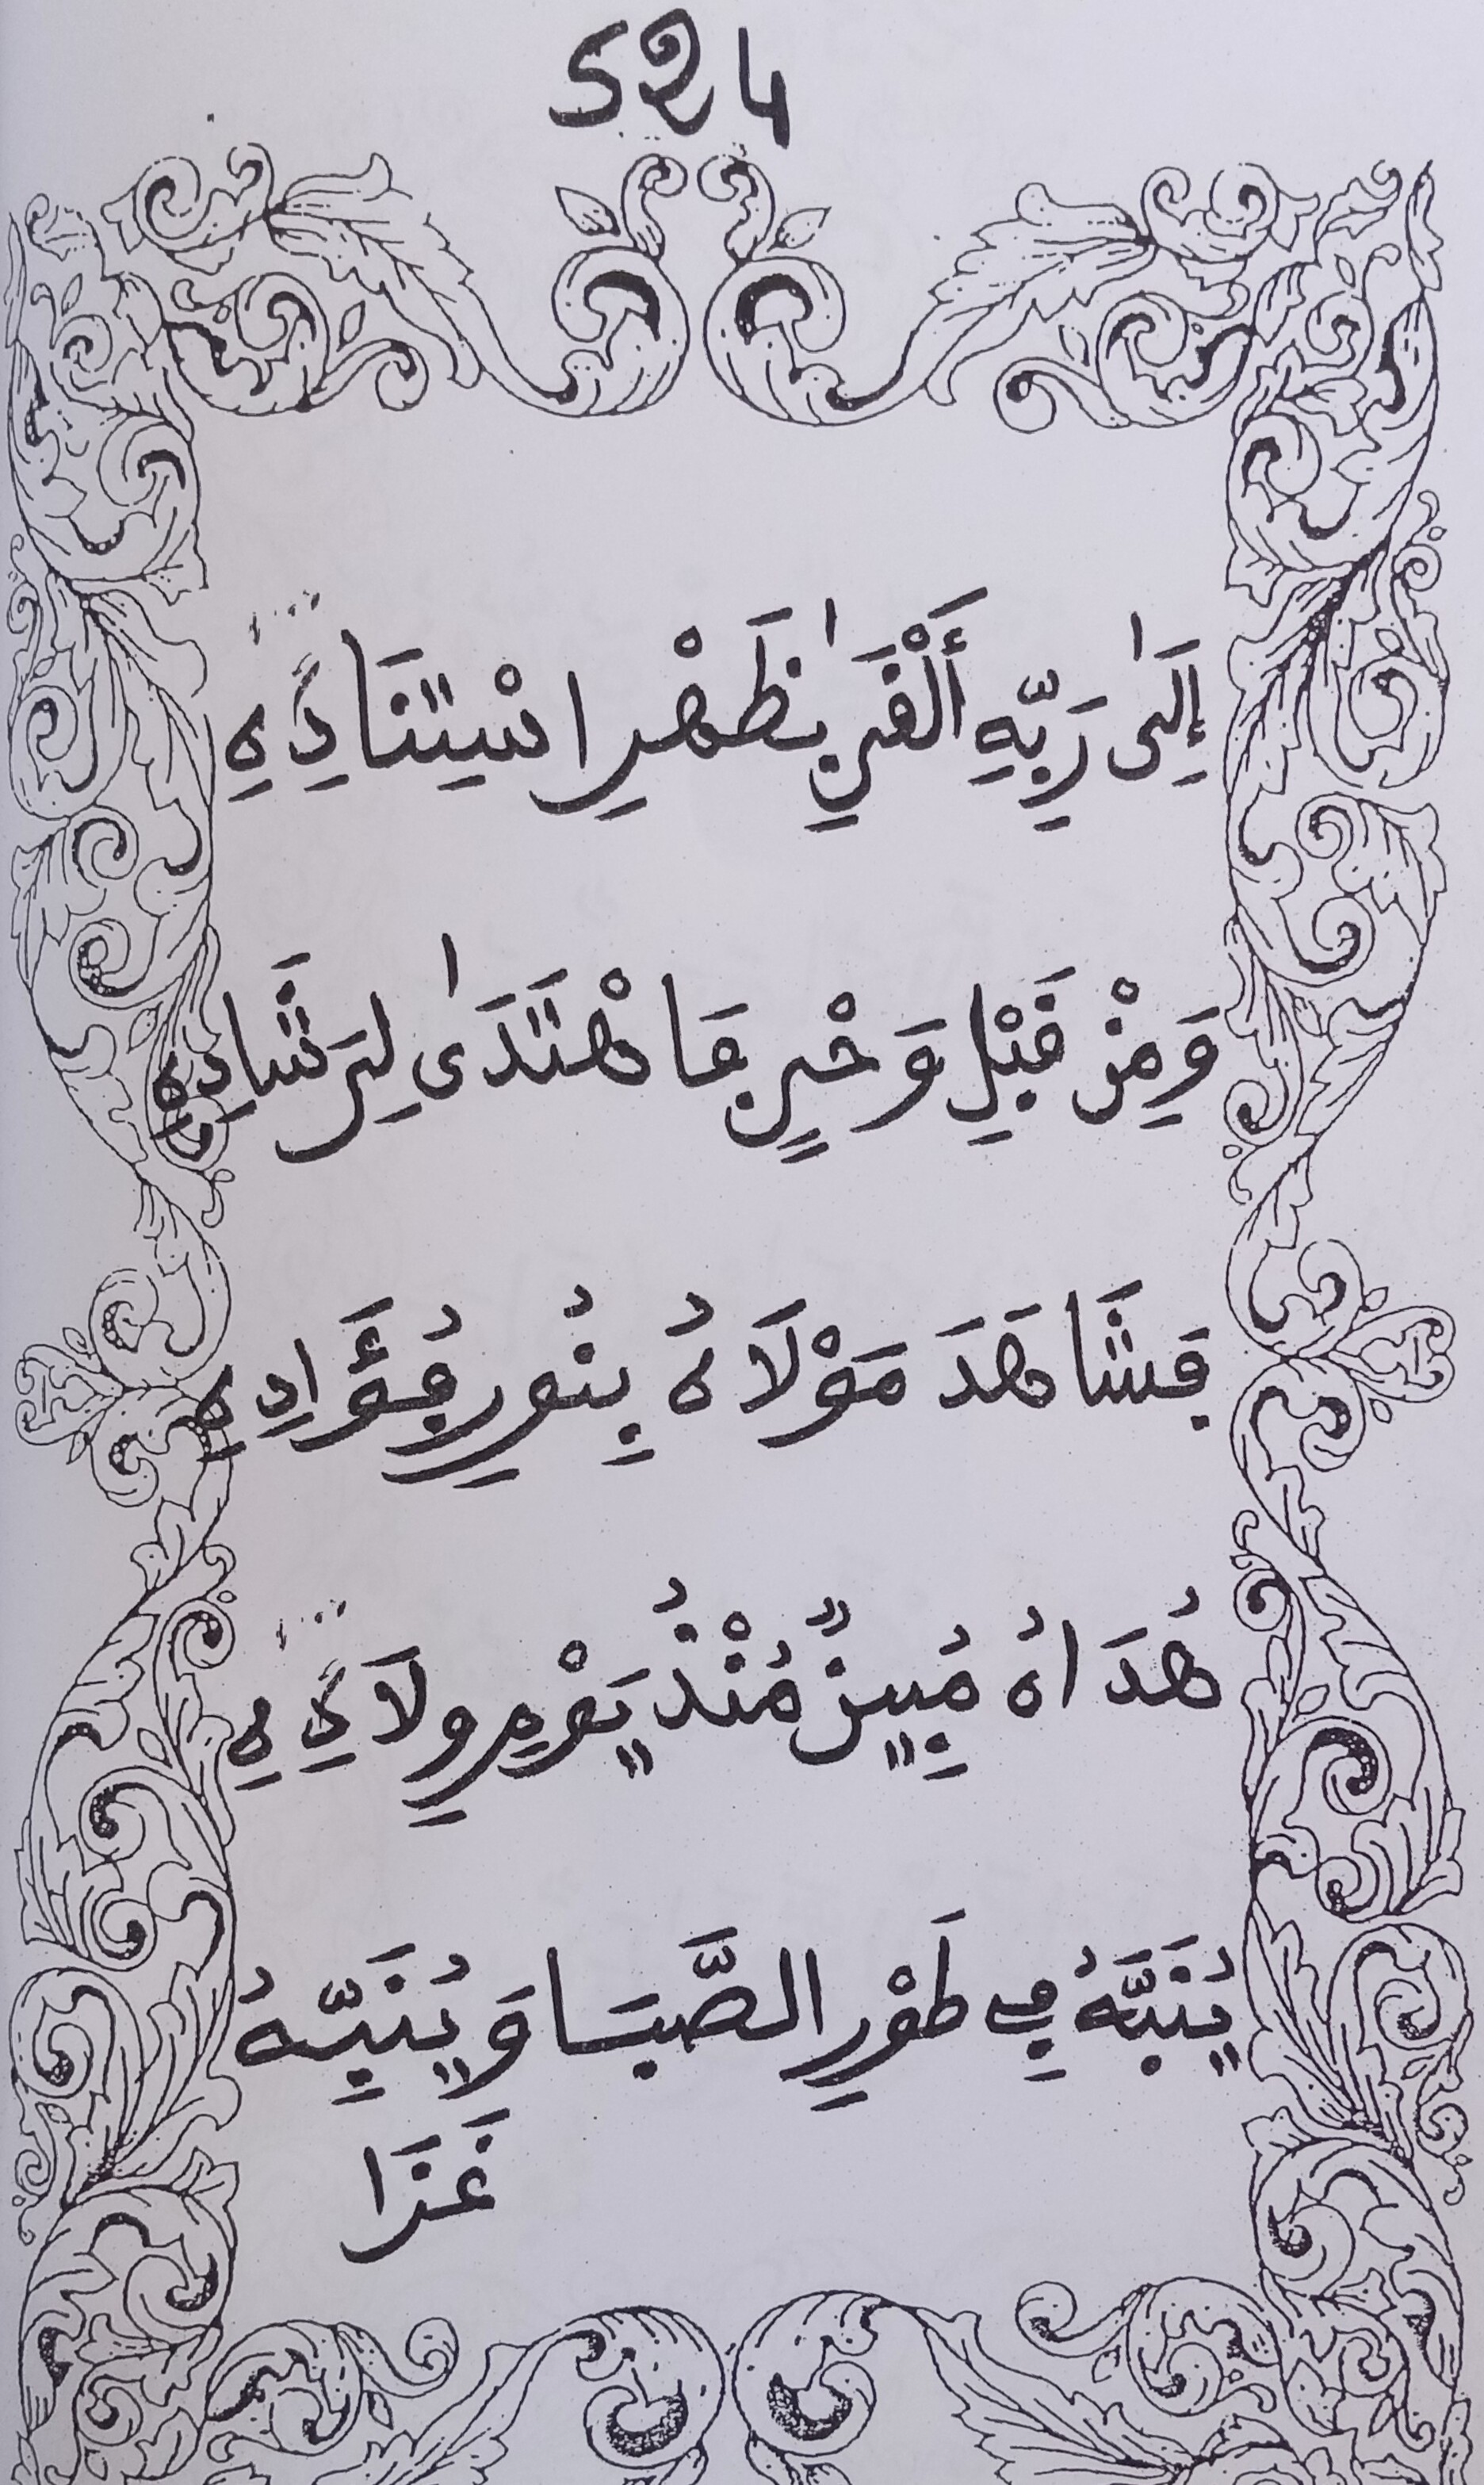 524
إِلَىٰ رَبِّهِ أَلْفَىٰ بِظَهْرِ اسْتِنَادِهِ
وَمِنْ قَبْلِ وَحْيٍ مَا هْتَدَىٰ لِرَشَادِهِ
فَشَاهَدَ مَوْلَاهُ بِنُورِ فُؤَادِهِ
هُدَاهُ مُبِينٌ مُنْذُ يَوْمِ وِلَادِهِ
يُنَبَّهُ فِي طَوْرِ الصَّبَا وَيُنَبِّهُ
غَزَا